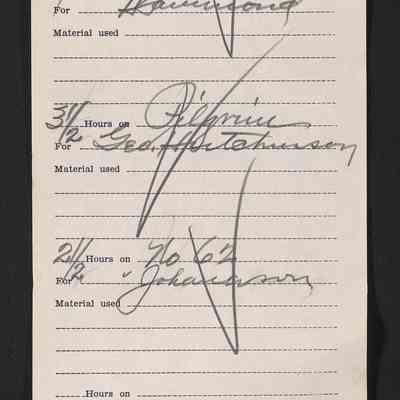 For Hammond
Material used
3 1/2 Hours on Pilgrim
For Geo. Hutchinson
Material used
2 1/2 Hours on No 62
For " Johanson
Material used
Hours on